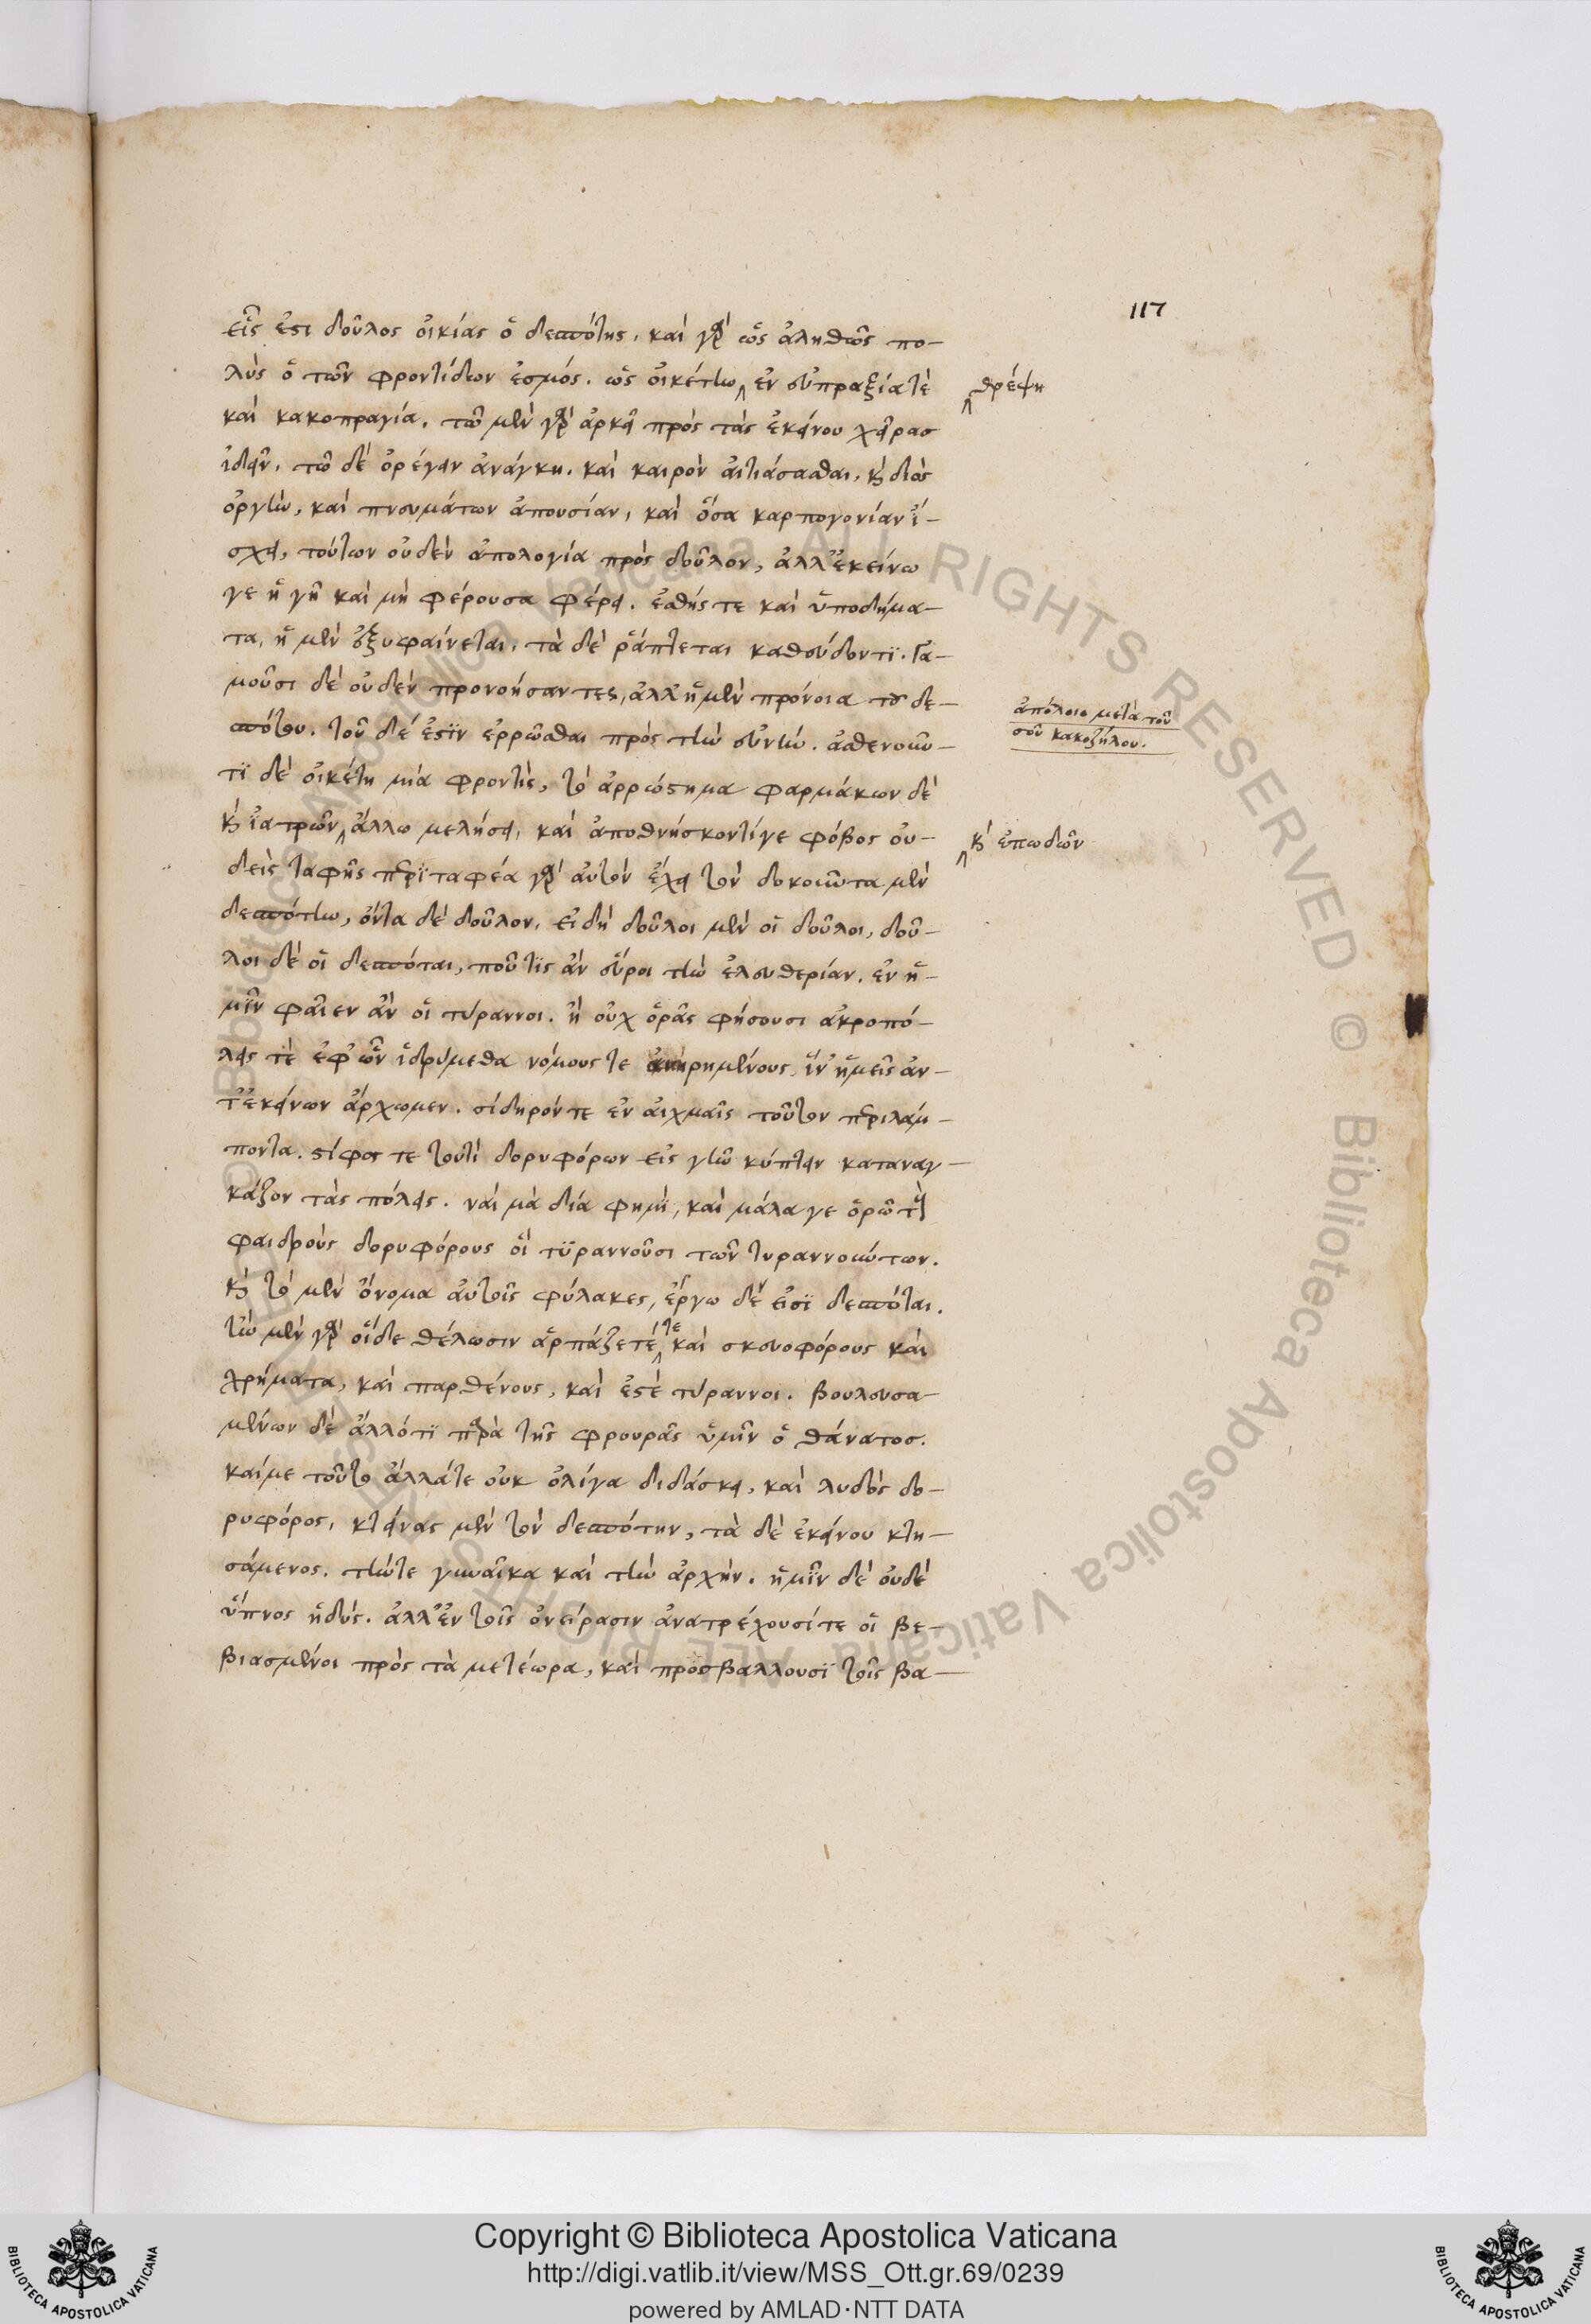 117
εἷς ἐστι δοῦλος οἰκίας ὁ δεσπότης, καὶ γὰρ ὡς ἀληθῶς πο-
λὺς ὁ τῶν φροντίδων ἐσμός. ὡς οἰκέτην ἐν εὐπραξίατὲ
θρέψη
καὶ κακοπραγία. τῶ μὲν γὰρ ἀρκεῖ πρὸς τὰς ἐκείνου χεῖρας
ἰδεῖν, τῶ δὲ ὀρέγειν ἀνάγκη. καὶ καιρὸν αἰτιάσασθαι, καὶ διὸς
ὀργὴν, καὶ πνευμάτων ἀπουσίαν, καὶ ὅσα καρπογονίαν ἴ-
σχει, τούτων οὐδὲν ἀπολογία πρὸς δοῦλον, ἀλλ' ἐκείνω
γε ἡ γῆ καὶ μὴ φέρουσα φέρει. ἐσθής τε καὶ ὑποδήμα-
τα, ἡ μὲν ἐξυφαίνεται, τὰ δὲ ῥάπτεται καθεύδοντϊ. Γα-
μοῦσι δὲ οὐδὲν προνοήσαντες, ἀλλ' ἡ μὲν πρόνοια τοῦ δε-
σπότου. τοῦ δέ ἐστϊν ἐρρῶσθαι πρὸς τὴν εὐνήν. ἀσθενοῦν-
ἀπόλοιο μετὰ τοῦ
σοῦ κακοζήλου.
τϊ δὲ οἰκέτη μία φροντὶς, τὸ ἀρρώστημα φαρμάκων δὲ
καὶ ἰατρῶν ἄλλω μελήσει, καὶ ἀποθνήσκοντίγε φόβος οὐ-
καὶ ἐπωδῶν
δεὶς ταφῆς περϊταφέα γὰρ αὐτὸν ἔχει τὸν δοκοῦντα μὲν
δεσπότην, ὄντα δὲ δοῦλον. εἰ δὴ δοῦλοι μὲν οἱ δοῦλοι, δοῦ-
λοι δὲ οἱ δεσπόται, ποῦ τϊς ἂν εὕροι τὴν ἐλευθερίαν. ἐν ἡ-
μῖν φαῖεν ἂν οἱ τύραννοι. ἢ οὐχ ὁρᾶς φήσουσι ἀκροπό-
λεις τὲ ἐφ' ὧν ἱδρύμεθα νόμους τε ἀνῃρημένους, ἵν' ἡμεῖς ἀν-
τ' ἐκείνων ἄρχωμεν. σίδηρόν τε ἐν αἰχμαῖς τοῦτον περιλάμ-
ποντα. στίφος τε τουτὶ δορυφόρων εἰς γῆν κύπτειν καταναγ-
κάζον τὰς πόλεις. ναὶ μὰ δία φημὶ, καὶ μάλα γε ὁρῶ τοὺς
φαιδροὺς δορυφόρους οἳ τϋραννοῦσι τῶν τυραννούντων.
καὶ τὸ μὲν ὄνομα αὐτοῖς φύλακες, ἔργω δέν εἰσϊ δεσπόται.
ἢν μὲν γὰρ οἵδε θέλωσιν ἁρπάζετέ τε καὶ σκευοφόρους καὶ
χρήματα, καὶ παρθένους, καὶ ἐστὲ τύραννοι. βουλευσα-
μένων δὲ ἄλλό τϊ παρὰ τῆς φρουρᾶς ὑμῖν ὁ θάνατος.
καί με τοῦτο ἄλλά τε οὐκ ὀλίγα διδάσκει, καὶ λυδὸς δο-
ρυφόρος, κτείνας μὲν τὸν δεσπότην, τὰ δὲ ἐκείνου κτη-
σάμενος. τήν τε γυναῖκα καὶ τὴν ἀρχήν. ἡμῖν δὲ οὐδὲ
ὕπνος ἡδύς. ἀλλ' ἐν τοῖς ὀνείρασιν ἀνατρέχουσί τε οἱ βε-
βιασμένοι πρὸς τὰ μετέωρα, καὶ προσβάλλουσϊ τοῖς βα-
© Biblioteca Apostolica Vaticana ALL RIGHTS RESERVED © Biblioteca Apostolica Vaticana ALL RIGHTS RESERVED
Copyright © Biblioteca Apostolica Vaticana
http://digi.vatlib.it/view/MSS_Ott.gr.69/0239
powered by AMLAD·NTT DATA
BIBLIOTECA APOSTOLICA VATICANA
BIBLIOTECA APOSTOLICA VATICANA